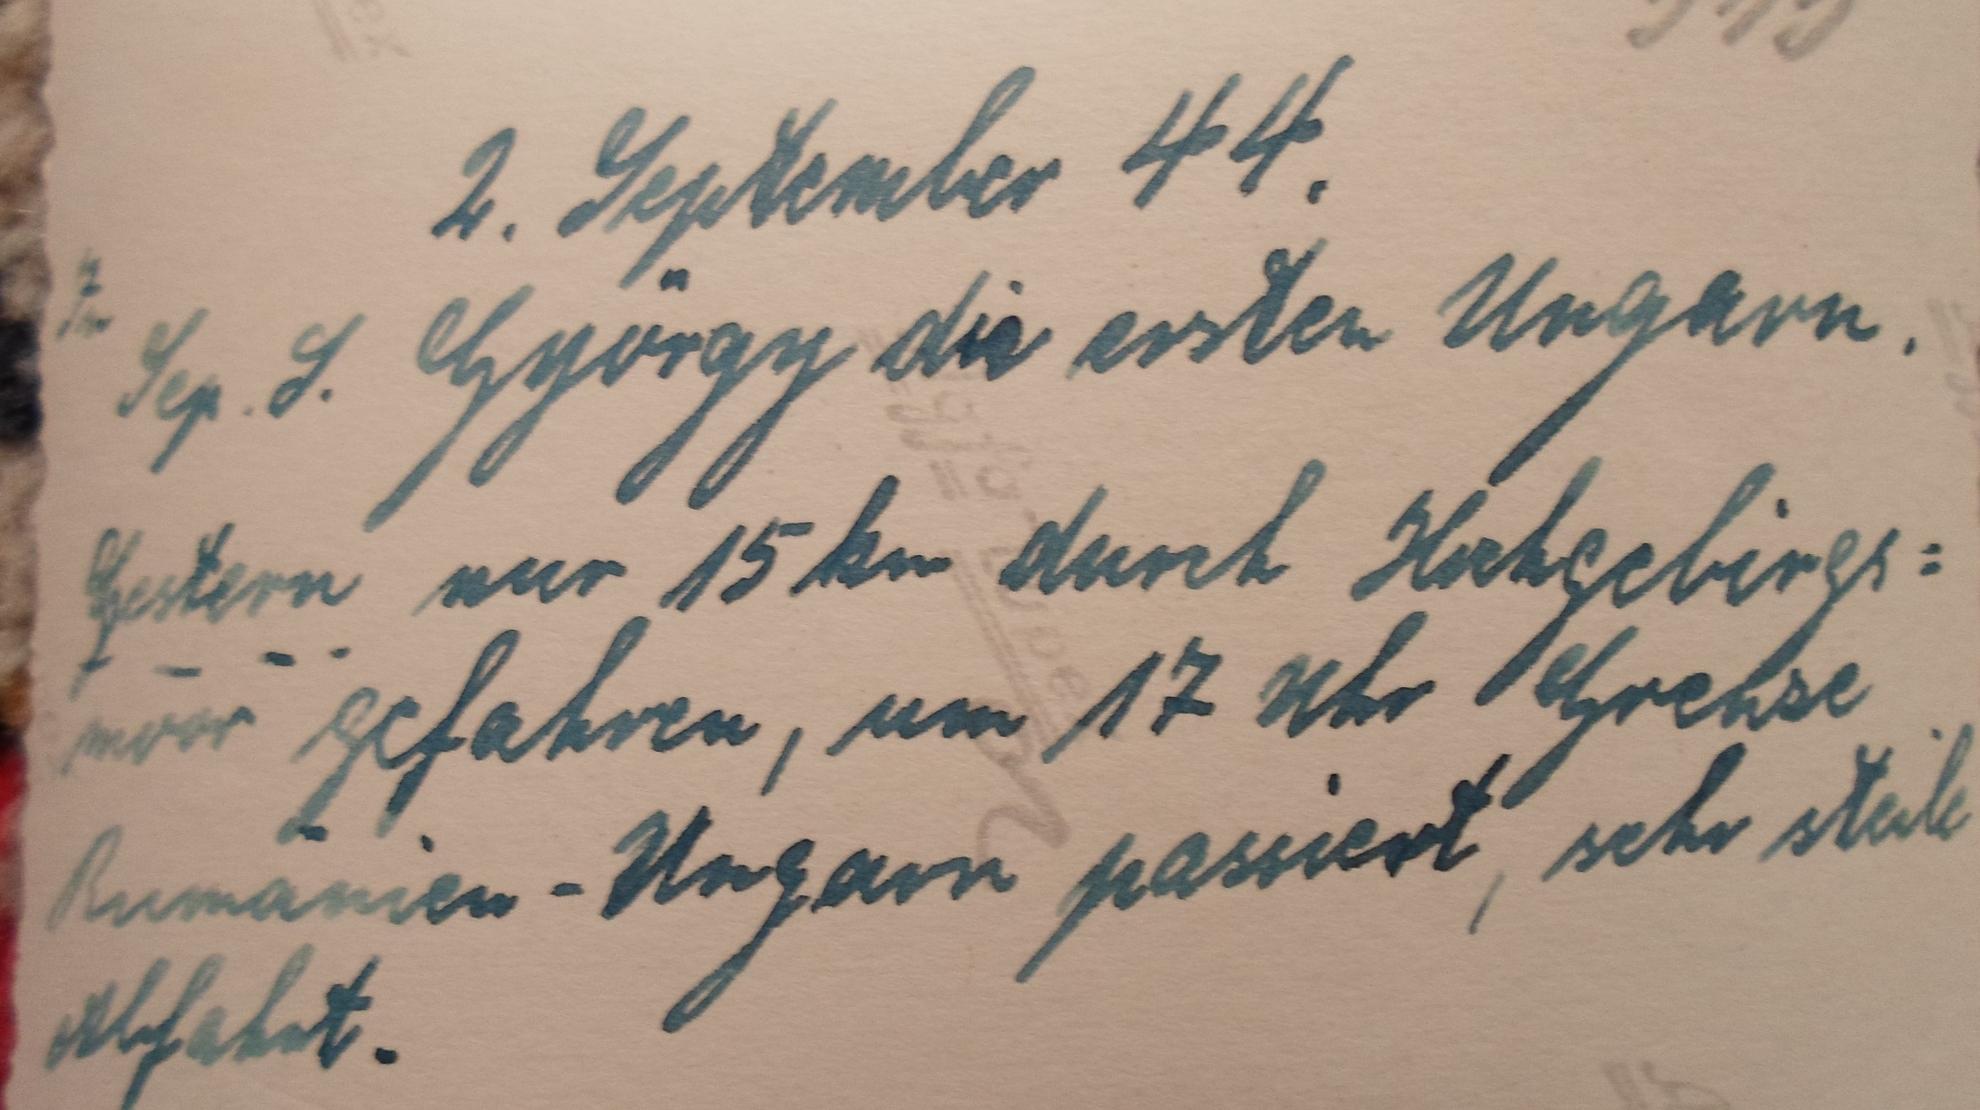 2. September 44.
In
Sep. S. György die ersten Ungarn.
Gestern nur 15 km durch Hochgebirgs=
moor gefahren, um 17 Uhr Grenze
Rumänien - Ungarn passiert, sehr steile
Abfahrt.